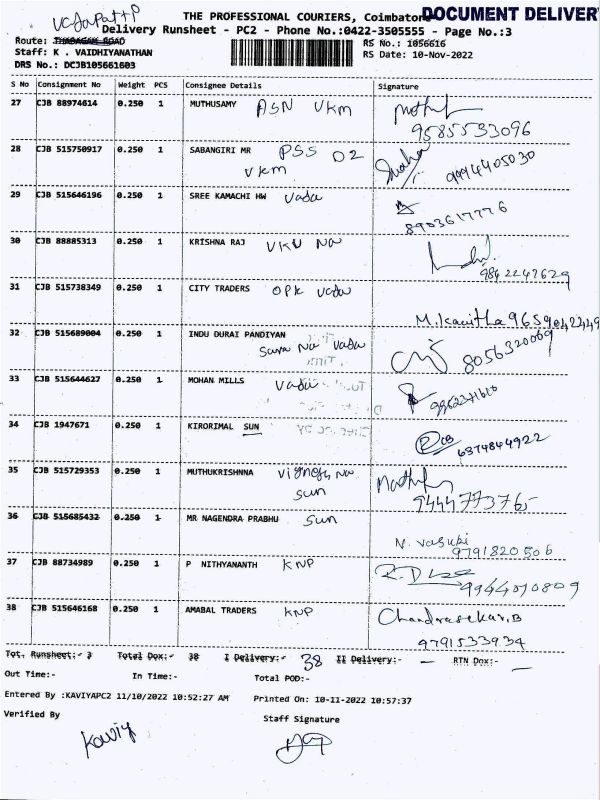 THE PROFESSIONAL COURIERS, Coimbatore
DOCUMENT DELIVER
Delivery Runsheet - PC2 - Phone No.:0422-3505555 - Page No.:3
Route: THADAGAM ROAD
RS No.: 1056616
Staff: K . VAIDHIYANATHAN
RS Date: 10-Nov-2022
DRS No.: DCJB105661603
S No Consignment No Weight PCS Consignee Details Signature
27 CJB 88974614 0.250 1 MUTHUSAMY ASN VKM
9585533096
28 CJB 515750917 0.250 1 SABANGIRI MR PSS D2
VKM
9094405030
29 CJB 515646196 0.250 1 SREE KAMACHI HW Vada
8903617776
30 CJB 88885313 0.250 1 KRISHNA RAJ VKV Na
9842247629
31 CJB 515738349 0.250 1 CITY TRADERS OPK Vada
M.Kavitha 9659042449
32 CJB 515689004 0.250 1 INDU DURAI PANDIYAN
Sara Na Vada
8056320069
33 CJB 515644627 0.250 1 MOHAN MILLS Vada
34 CJB 1947671 0.250 1 KIRORIMAL SUN
6374844922
35 CJB 515729353 0.250 1 MUTHUKRISHNNA Vignesh Na
Sun
9444773765
36 CJB 515685432 0.250 1 MR NAGENDRA PRABHU Sun
N. Vasuki
9791820506
37 CJB 88734989 0.250 1 P NITHYANANTH KNP
9944070809
38 CJB 515646168 0.250 1 AMABAL TRADERS KNP
Chandrasekar.B
9791533934
Tot. Runsheet:- 3 Total Dox:- 38 I Delivery:- 38 II Delivery:- — RTN Dox:- —
Out Time:- In Time:- Total POD:-
Entered By :KAVIYAPC2 11/10/2022 10:52:27 AM Printed On: 10-11-2022 10:57:37
Verified By Staff Signature
Kaviy